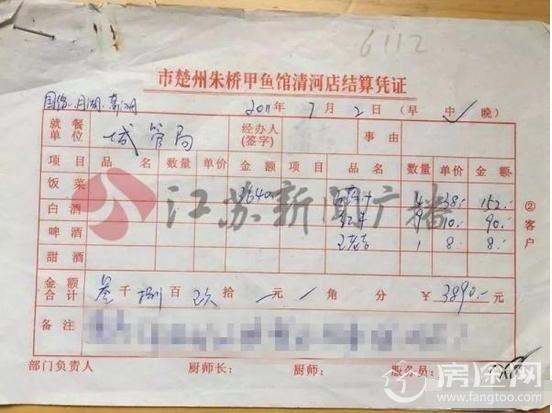 6112
市楚州朱桥甲鱼馆清河店结算凭证
2011年7月2日(早 中✓ 晚)
就餐单位 城管局 经办人(签字) 事由
项目 品名 数量 单价 金额 项目 品名 数量 单价 金额
饭菜 3640 4 38.- 152.-
白酒 9 10.- 90.-
啤酒 王老吉 1 8.- 8.-
甜酒
金额合计 叁千捌百玖拾 元 角 分 ¥3890.-
备注
部门负责人 厨师长: 厨师: 服务员:
②客户
江苏新闻广播
房途网
www.fangtoo.com